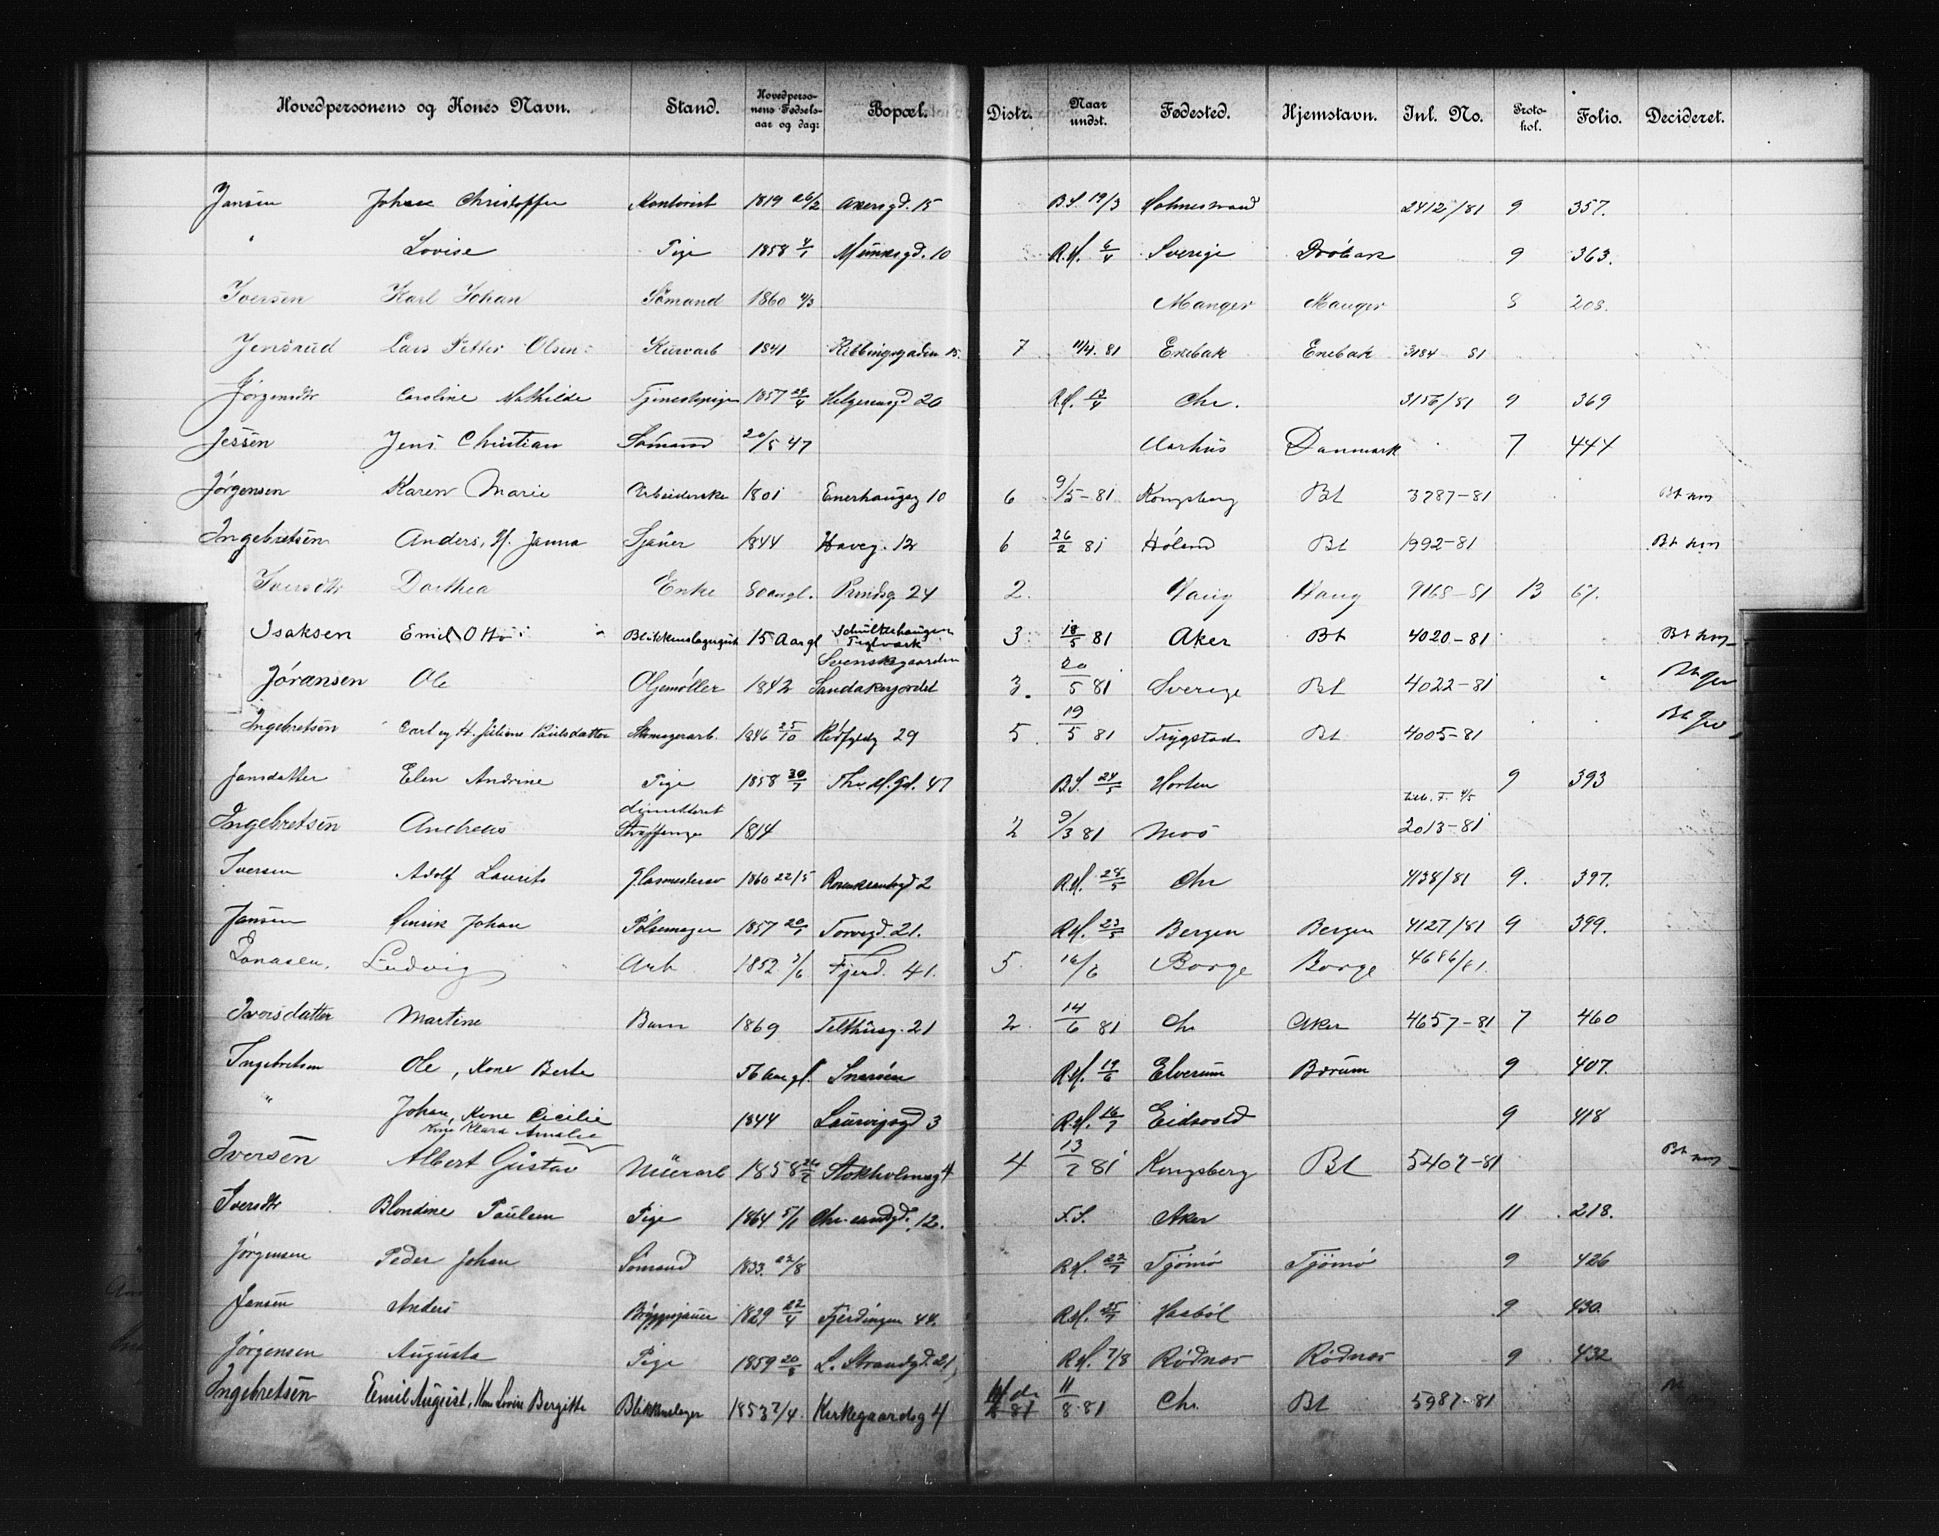 Hovedpersonens og Kones Navn. Stand. Hovedperso-nens Fødsels-aar og dag: Bopæl. Distr. Naar undst. Fødested. Hjemstavn. Inl. No. Proto-kol. Folio. Decideret.
Jansen Johan Christoffer Kontorist 1819 26/2 Akersgd. 15 19/3 Holmestrand 2412/81 9 357.
" Lovise Pige 1858 Munksgd. 10 R.H. 6/4 Sverige Dröbak 9 363.
Iversen Karl Johan Sömand 1860 4/3 Manger Manger 8 208.
Jensrud Lars Petter Olsen Kurvarb 1841 7 11/4. 81 Enebak Enebak 3184 81
Jörgensdtr Caroline Mathilde Tjenestepige 1857 Helgesensgd 20 R.H. 12/4 Chr. 3156/81 9 369
Jessen Jens Christian Sömand 20/5 47 Aarhus Danmark 7 444
Jörgensen Karen Marie Arbeiderske 1801 Enerhaugsg 10 6 9/5-81 Kongsberg Bt 3787-81
Ingebretsen Anders, H. Janna Sjauer 1844 Haveg. 12 6 26/2 81 Höland Bt 1992-81
Iversdtr Dorthea Enke 80 aar gl. Prindsg 24 2. Haug Haug 9168-81 13 67.
Isaksen Emil Otto Blikkenslagergut 15 Aar gl Schulterhaugen Teglverk 3 18/5 81 Aker Bt 4020-81
Jöransen Ole Oljemøller 1842 Svenskegaarden Sandakerjordet 3. 20/5 81 Sverige Bt 4022-81
Ingebretsen Carl og H. Juliane Paulsdatter Skomagerarb. 1846 25/10 Rödfyldg 29 5. 19/5 81 Trygstad Bt 4005-81
Jansdatter Elen Andrine Pige 1858 30/7 Thv. M. Gd. 47 24/5 Horten 9 393
Ingebretsen Andreas dimitteret Straffange 1814 2 9/3 81 Moss 2013-81
Iversen Adolf Laurits Glasmestersv 1860 22/5 Rosenkrantzgd 2 R.H. 28/5 Chr 4138/81 9. 397.
Jansen Henrik Johan Pölsemager 1857 Torvgd. 21. R.H. 23/5 Bergen Bergen 4127/81 9 399.
Jonasen, Ludvig Arb 1852 Fjerd. 41. 5. 16/6 Borge Borge 4686/81.
Iversdatter Martine Barn 1869 Telthusg. 21 2. 14/6 81 Chr Aker 4657-81 7 460
Ingebretsen Ole, Kone Berte 56 aar gl. Snarøen R.H. 19/6 Elverum Bærum 9 407.
" Johan, Kone Cecilie 1844 Laurvigsgd 3 R.H. 16/7 Eidsvold 9 418
Kone Klara Amalie
Iversen Albert Gustav Murarb 1858 Stokholmsg 4 4 13/7 81 Kongsberg Bt 5407-81
Iversdtr Blondine Paulsen Pige 1864 5/1 12. F.S. Aker 11 218.
Jörgensen Peder Johan Sömand 1833. 22/8 R.H. 22/7 Tjömö Tjömö 9 426
Jansen Anders Bryggesjauer 1829 22/4 Fjerdingen 44. R.H. 25/7 Hasböl 9 430.
Jörgensen Augusta Pige 1859 20/8 L. Strandgd. 21, R.H. 7/8 Rödnes Rödnes 9 432
Ingebretsen Emil August, Kone Lovise Bergitte Blikkenslager 1853 7/4. Kirkegaardsg 4 11/8 81 Chr. Bt 5987-81